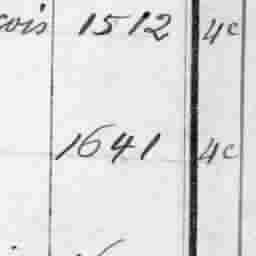 çois 1512 4c
1641 4c